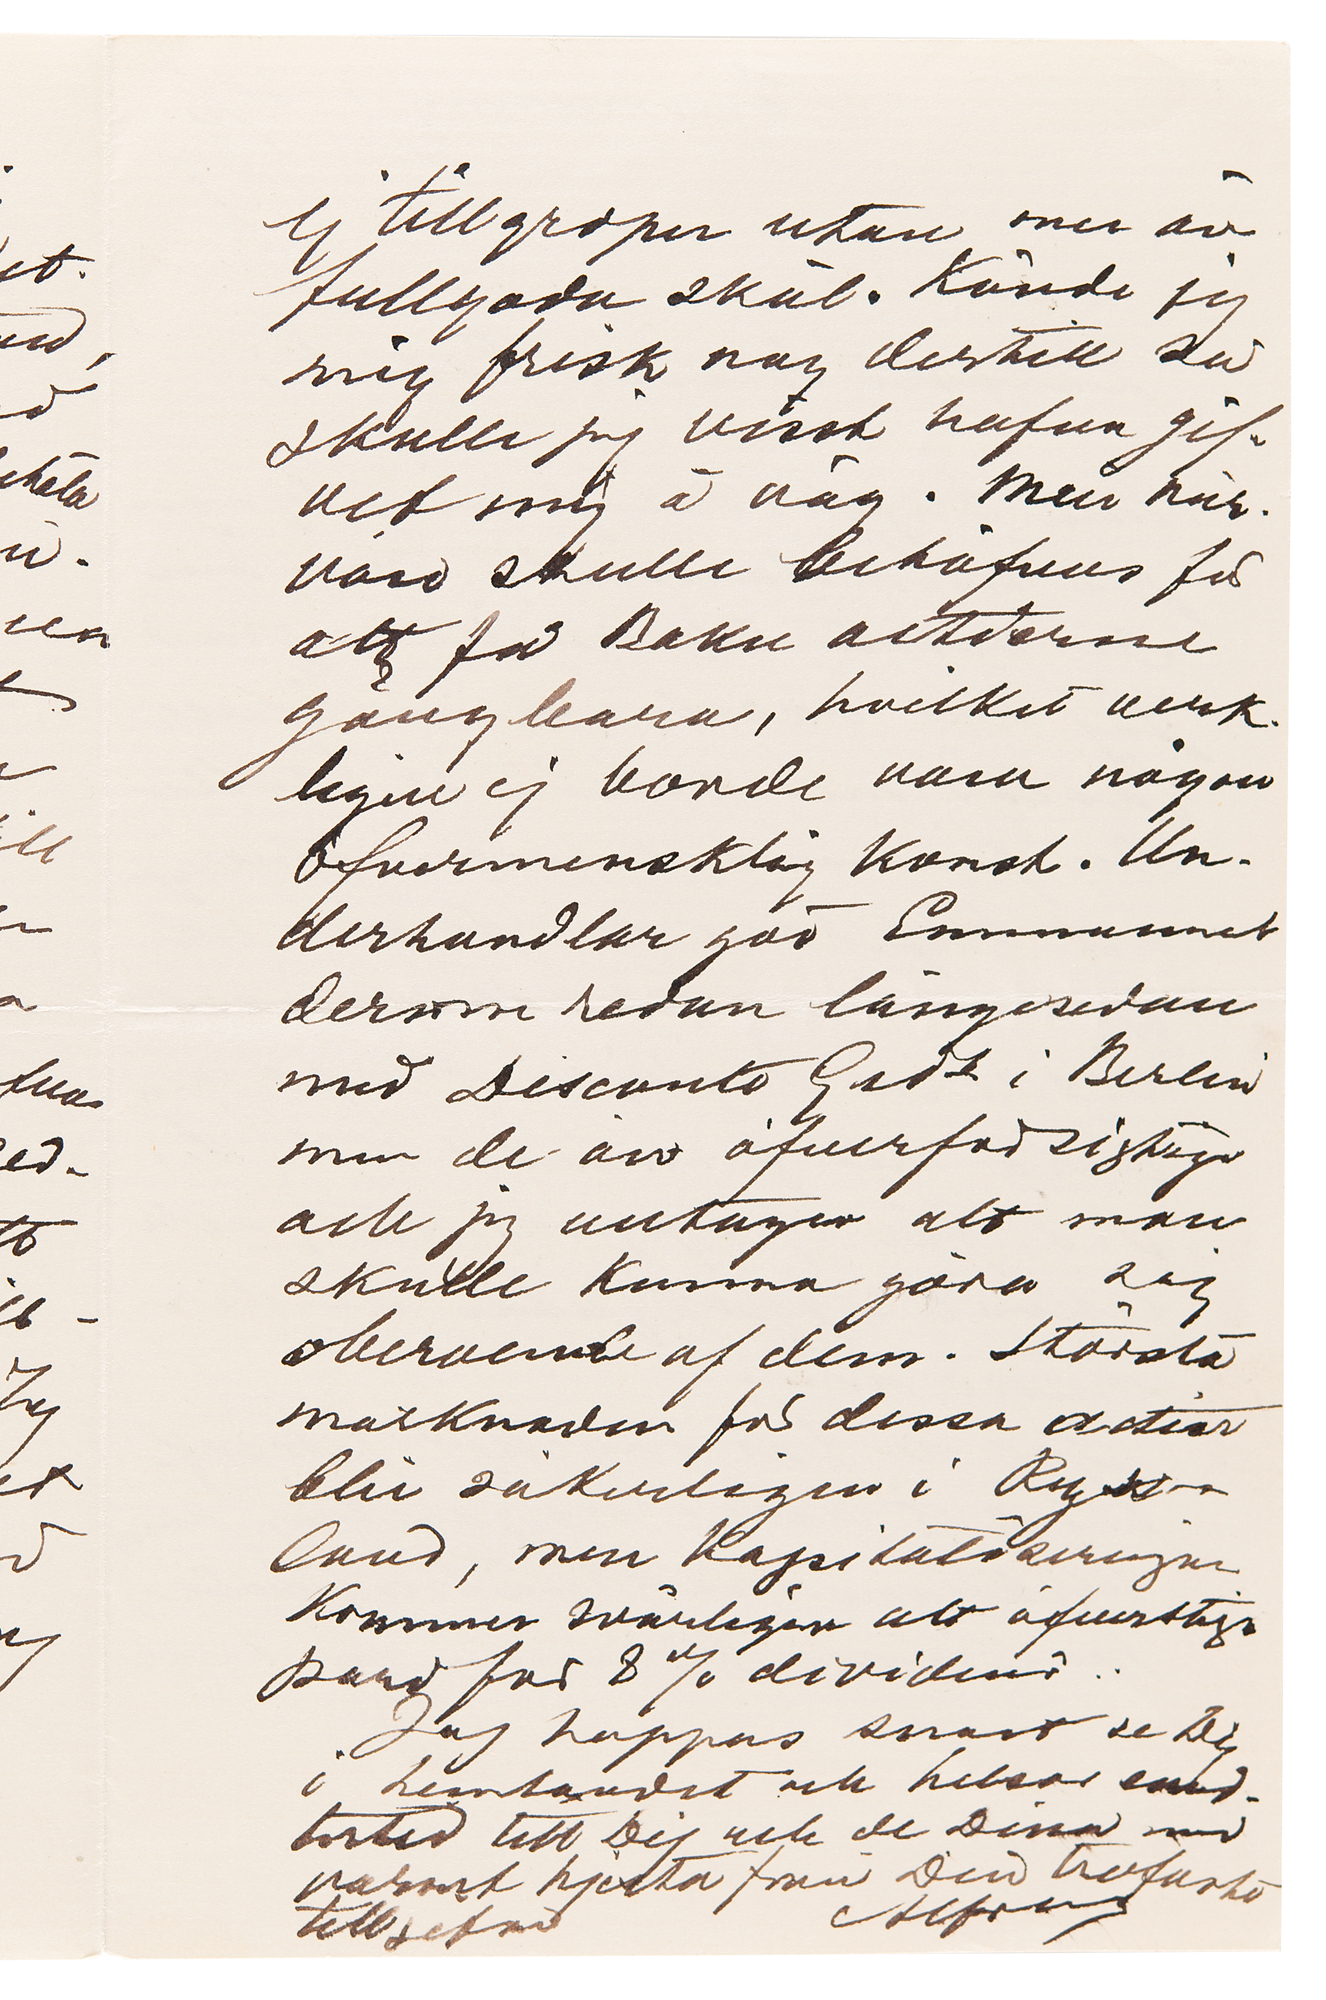 ej tillgriper utan mer än
fullgoda skäl. Kände jag
mig frisk nog dertill så
skulle jag visst hafva gif-
vet mig å väg. Men när-
varo skulle behöfvas för
att få Baku actierne
gångbara, hvilket verk-
ligen ej borde vara någon
öfvermensklig konst. Un-
derhandlar gör Emmanuel
derom redan längesedan
med Disconto Ges. i Berlin
men de äro öfverförsigtige
och jag antager att man
skulle kunna göra sig
oberoende af dem. Största
marknaden för dessa actier
blir säkerligen i Ryss-
land, men Kapitaliseringen
kommer svårligen att öfverstiga
pari för 8 % dividend..
Jag hoppas snart se Dig
i hemlandet och helsar
till Dig och de Dina med
varmt hjerta från Din trofaste
tillgifne Alfred
st.
and,
till
a
ed-
tt